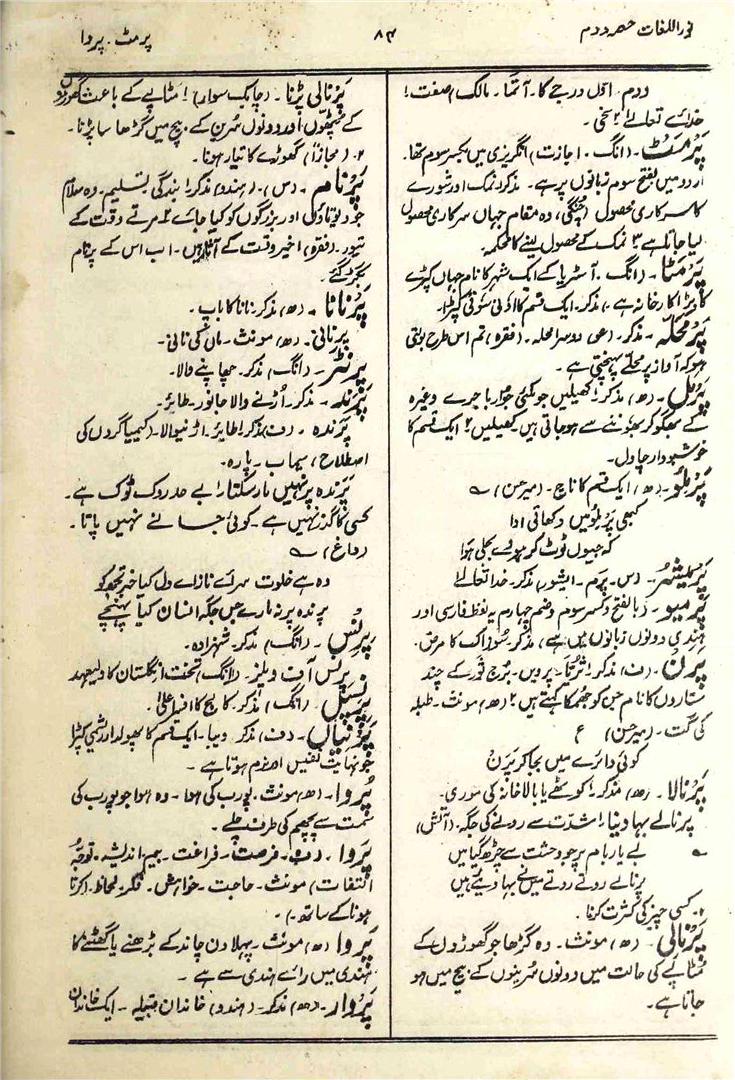 نور اللغات حصہ دوم
۸۴
پرمٹ۔ پروا
دوم۔ اوّل درجے کا۔ آتما۔ مالک (صفت)
خدائے تعالےٰ ۲ سخی۔
پَرمَٹ۔ (انگ۔ اجازت) انگریزی میں بکسر سوم تھا۔
اردو میں بفتح سوم زبانوں پر ہے۔ مذکر۔ نمک اور شورے
کا سرکاری محصول (چنگی) وہ مقام جہاں سرکاری محصول
لیا جاتا ہے ۳ نمک کے محصول لینے کا محکمہ۔
پَرمَٹا۔ (انگ۔ آسٹریا کے ایک شہر کا نام جہاں کپڑے
کا بڑا کارخانہ ہے) مذکر۔ ایک قسم کا اونی سوتی کپڑا۔
پَرمحلہ۔ مذکر۔ (عو) دوسرا محلہ۔ (فقرہ) تم اس طرح بولتی
ہو کہ آواز پر محلے پہنچتی ہے۔
پَرمَل۔ (ھ) مذکر ۱ کھیلیں جو مکئی جوار باجرے وغیرہ
کے بھگو کر بھوننے سے ہو جاتی ہیں۔ کھیلیں ۲ ایک قسم کا
خوشبودار چاول۔
پَرملو۔ (ھ) ایک قسم کا ناچ۔ (میر حسن) ؎
کبھی پرملو میں دکھاتی ادا
کہ جیوں ٹوٹ کر ہووے بجلی ہوا
پَرمیشُر۔ (س۔ پرم۔ ایشور) مذکر۔ خدا تعالےٰ
پَرمیو۔ (بالفتح و کسر سوم و ضم چہارم یہ لفظ فارسی اور
ہندی دونوں زبانوں میں ہے) مذکر۔ سوزاک کا مرض۔
پَرَن۔ (ف) مذکر ۱ ثریّا۔ پرویں۔ برج ثور کے چند
ستاروں کا نام جن کو جھمکا کہتے ہیں ۲ (ھ) مونث۔ طبلہ
کی گت۔ (میر حسن) ع
کوئی دائرے میں بجا کر پرن
پَرنالا۔ (ھ) مذکر ۱ کوٹھے یا بالاخانہ کی موری۔
پرنالے بہا دینا ۱ شدّت سے رونے کی جگہ۔ (آتش)
؎ بے یار بام پر جو وحشت سے چڑھ گیا میں
پرنالے روتے روتے میں نے بہا دیے ہیں
۲۔ کسی چیز کی کثرت کرنا۔
پَرنالی۔ (ھ) مونث۔ وہ گڑھا جو گھوڑوں کے
مٹاپے کی حالت میں دونوں سُرینوں کے بیچ میں ہو
جاتا ہے۔
پَرنالی پڑنا۔ (چابک سوار) ۱ مٹاپے کے باعث گھوڑوں
کے پٹھوں اور دونوں سُرین کے بیچ میں گڑھا سا پڑنا۔
۲۔ (مجازاً) گھوڑے کا تیار ہونا۔
پَرنام۔ (س)۔ (ہندو) مذکر ۱ بندگی تسلیم۔ وہ سلام
جو دیوتاؤں اور بزرگوں کو کیا جائے ۲ مرتے وقت کے
تیور۔ (فقرہ) اخیر وقت کے آثار ہیں۔ اب اس کے پرنام
بگڑ گئے۔
پَرنانا۔ (ھ) مذکر۔ نانا کا باپ۔
پرنانی۔ (ھ) مونث۔ ماں کی نانی۔
پرنٹر۔ (انگ) مذکر۔ چھاپنے والا۔
پَرند۔ مذکر۔ اُڑنے والا جانور۔ طائر۔
پرَندہ۔ (ف) مذکر ۱ طائر۔ اڑنیوالا۔ (کیمیاگروں کی
اصطلاح) سیماب۔ پارہ۔
پَرندہ پر نہیں مار سکتا ۱ بے حد روک ٹوک ہے۔
کسی کا گذر نہیں ہے۔ کوئی جانے نہیں پاتا۔
(داغ) ؎
وہ ہے خلوت سرائے ناز اے دل کیا خبر تجھ کو
پرندہ پر نہ مارے جس جگہ انسان کیا پہنچے
پرِنس۔ (انگ) مذکر۔ شہزادہ۔
پرنس آف ویلز۔ (انگ) تخت انگلستان کا ولیعہد
پرنسپل۔ (انگ) مذکر۔ کالج کا افسر اعلیٰ۔
پَرنیاں۔ (ف) مذکر۔ دیبا۔ ایک قسم کا پھولدار ریشمی کپڑا
جو نہایت نفیس اور نرم ہوتا ہے۔
پُروا۔ (ھ) مونث۔ پورب کی ہوا۔ وہ ہوا جو پورب کی
سمت سے پچھم کی طرف چلے۔
پَروا۔ (ف۔ فرصت۔ فراغت۔ بیم۔ اندیشہ۔ توجّہ
التفات) مونث۔ حاجت۔ خواہش۔ فکر۔ لحاظ۔ (کرنا
ہونا کے ساتھ)۔
پَروا (ھ) مونث۔ پہلا دن چاند کے بڑھنے یا گھٹنے کا
ہندی میں رائے ہندی سے ہے۔
پَروار۔ (ھ) مذکر۔ (ہندو) خاندان قبیلہ۔ ایک خاندان